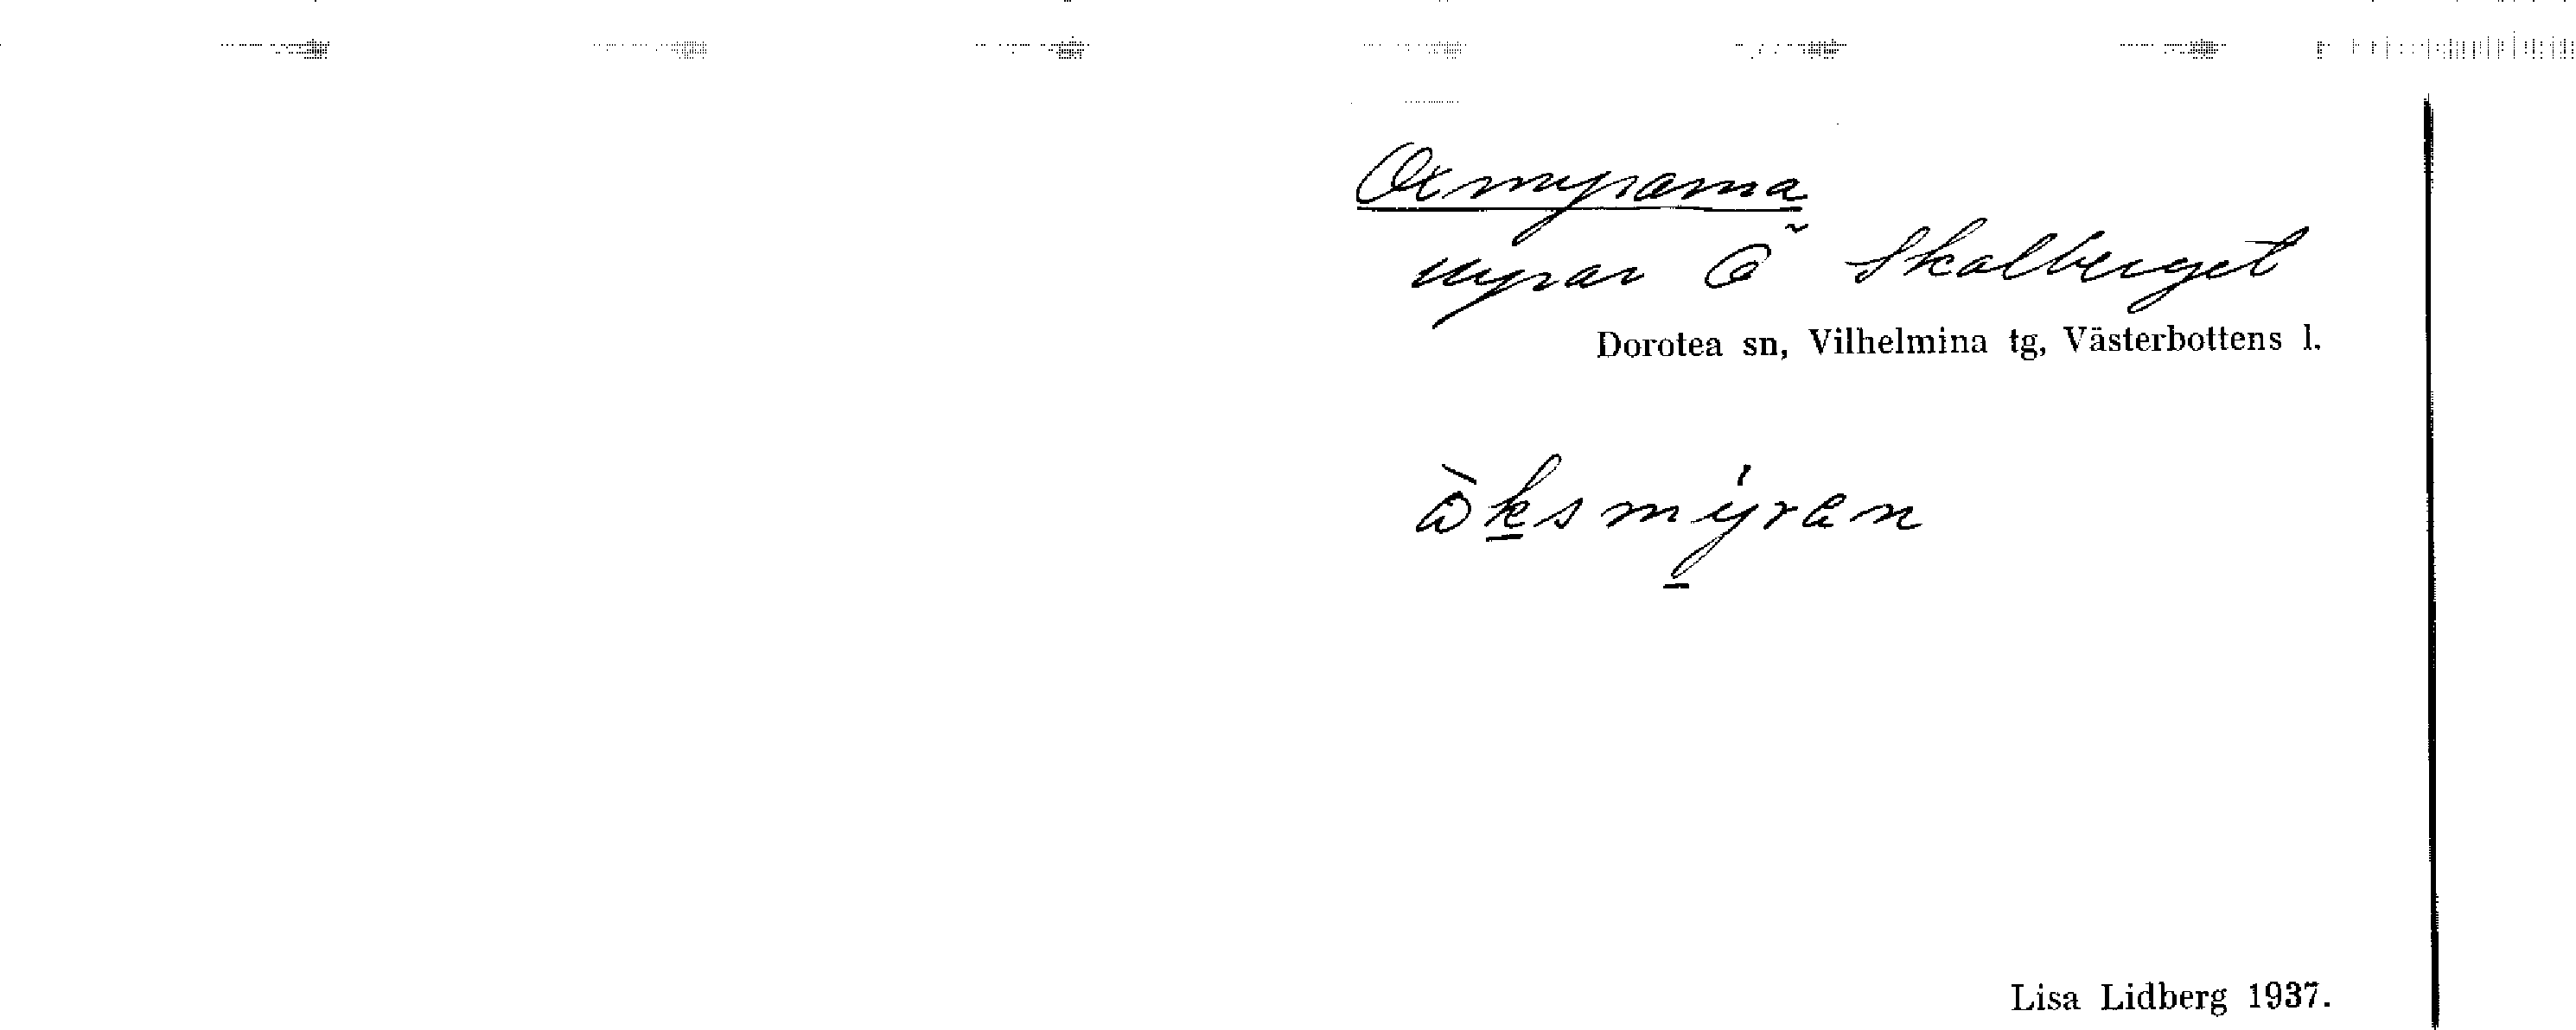 Oxmyrarna
myrar Ö Skalberget
Dorotea sn, Vilhelmina tg, Västerbottens l.
ò̈ksmýran
Lisa Lidberg 1937.